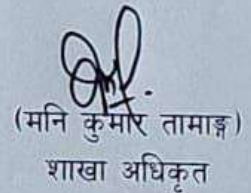 (मनि कुमार तामाङ्ग)
शाखा अधिकृत